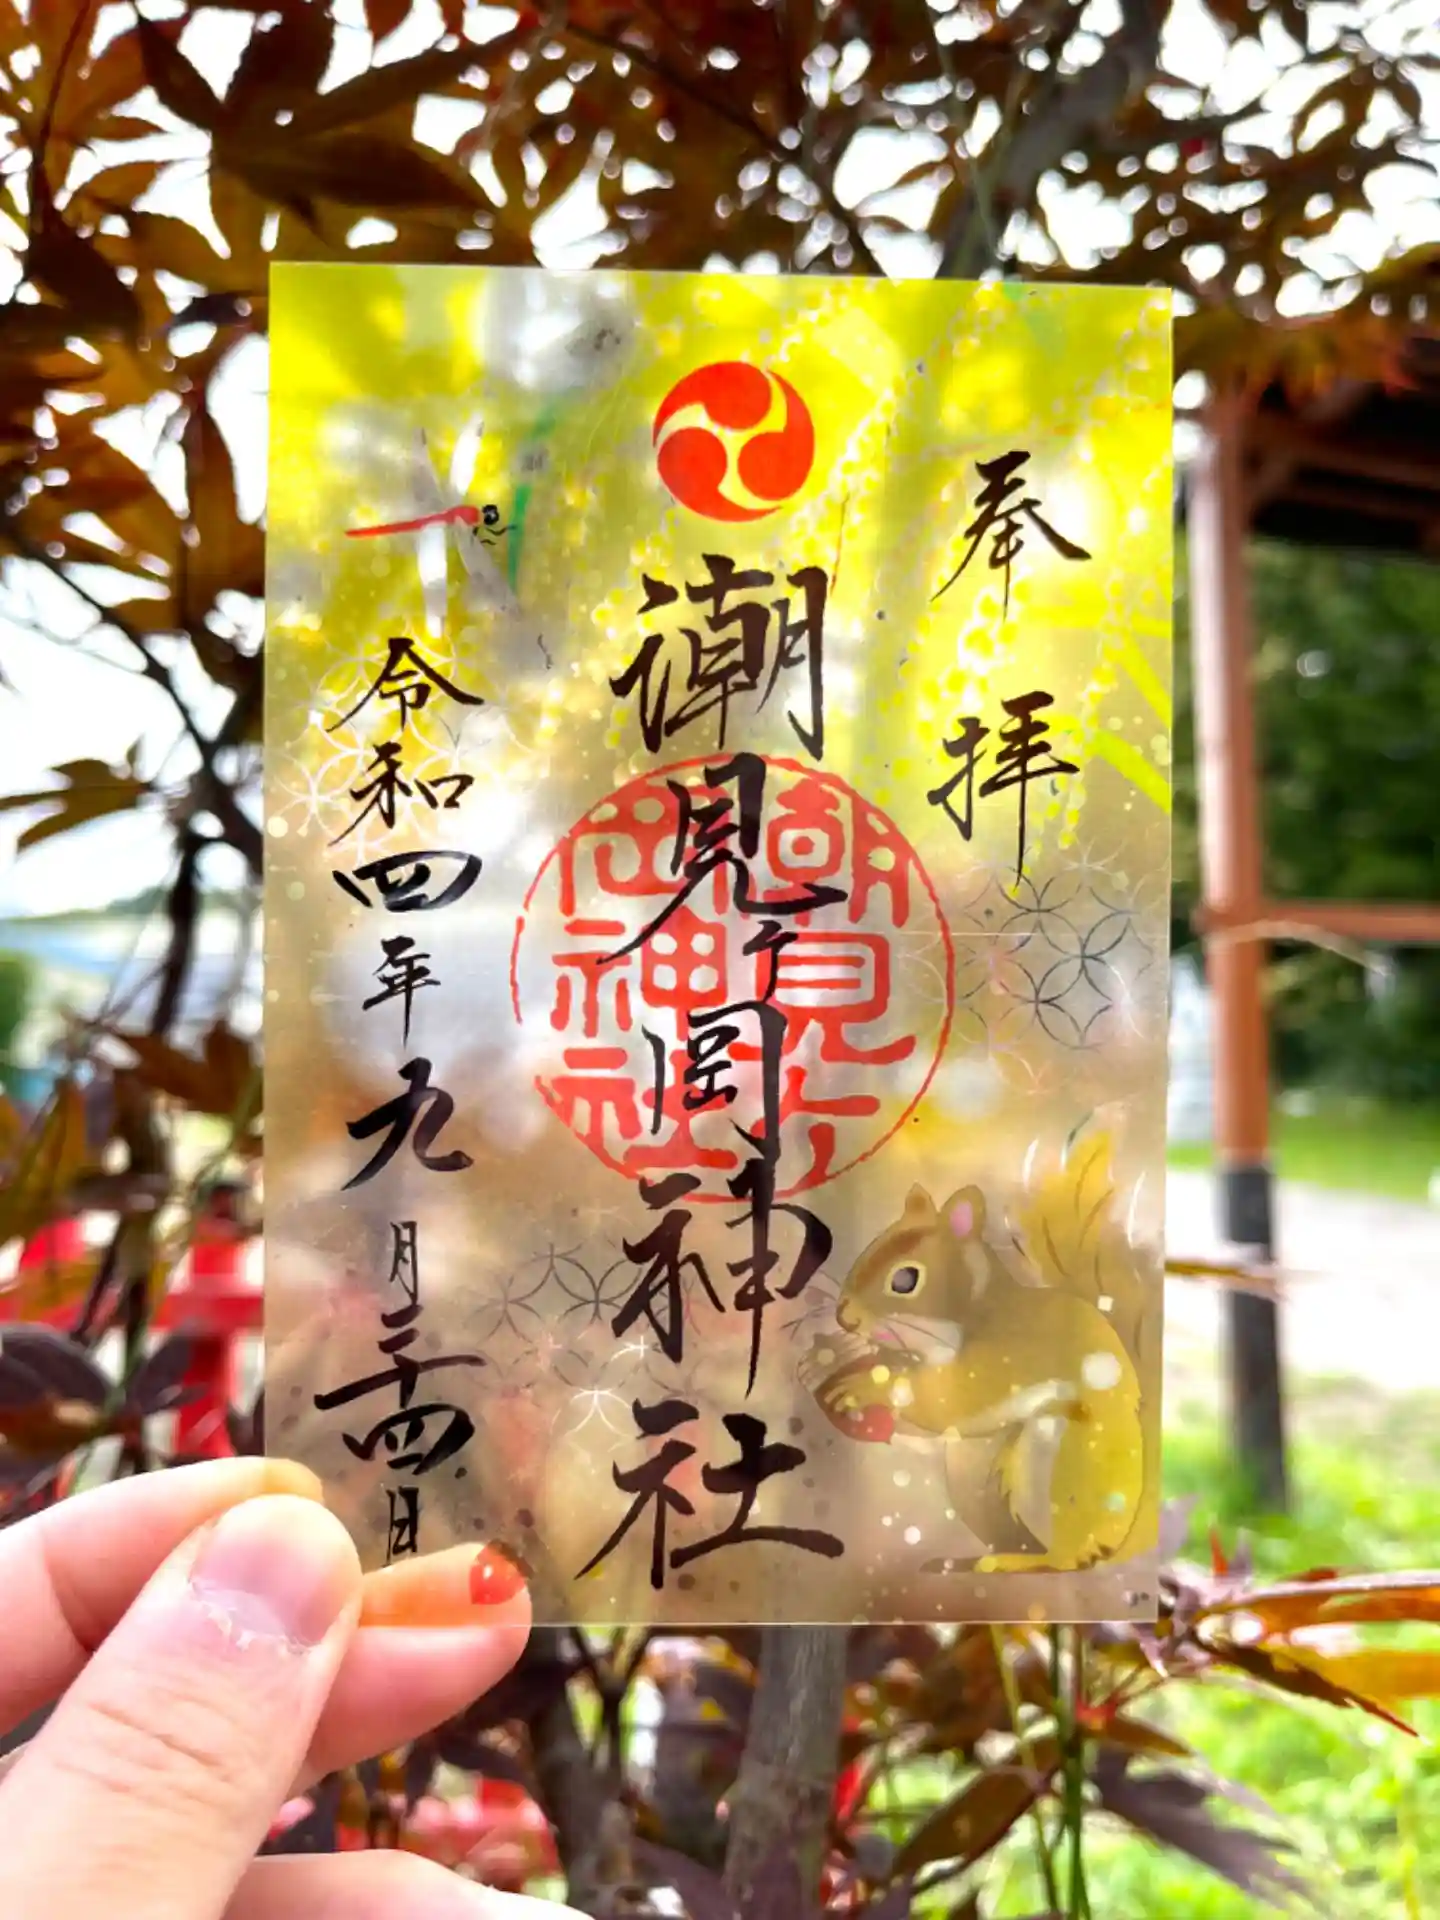 奉拝
潮見ヶ岡神社
潮見ヶ
岡神社
令和四年九月二十四日